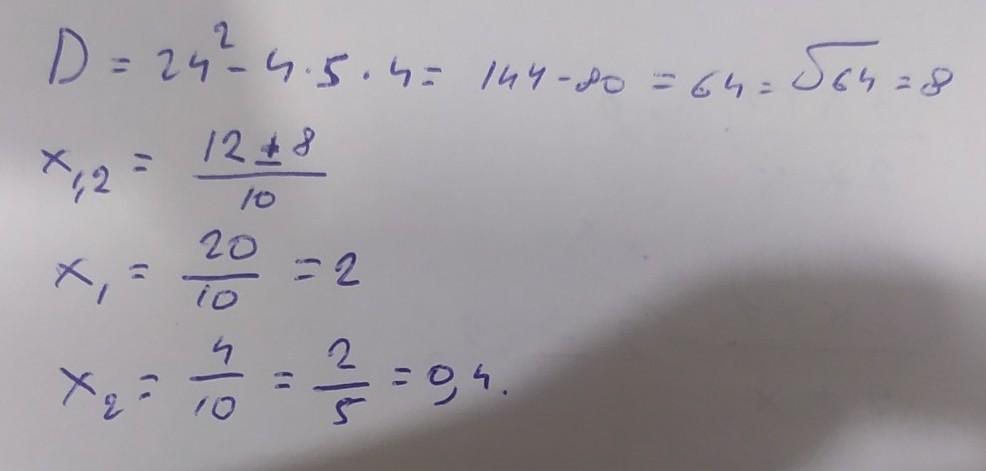 D = 24² - 4 · 5 · 4 = 144 - 80 = 64 = √64 = 8
x₁,₂ = (12 ± 8)/10
x₁ = 20/10 = 2
x₂ = 4/10 = 2/5 = 0,4.